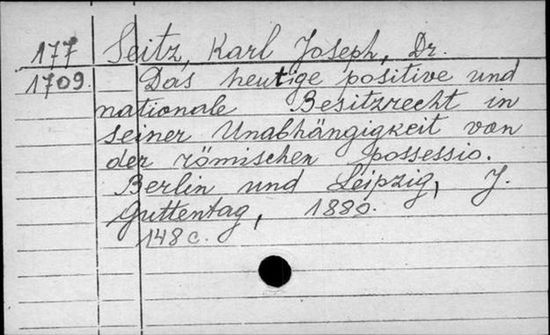 177 Seitz, Karl Joseph, Dr.
1709. Das heutige positive und
nationale Besitzrecht in
seiner Unabhängigkeit von
der römischen possessio.
Berlin und Leipzig, J.
Guttentag, 1880.
148 c.